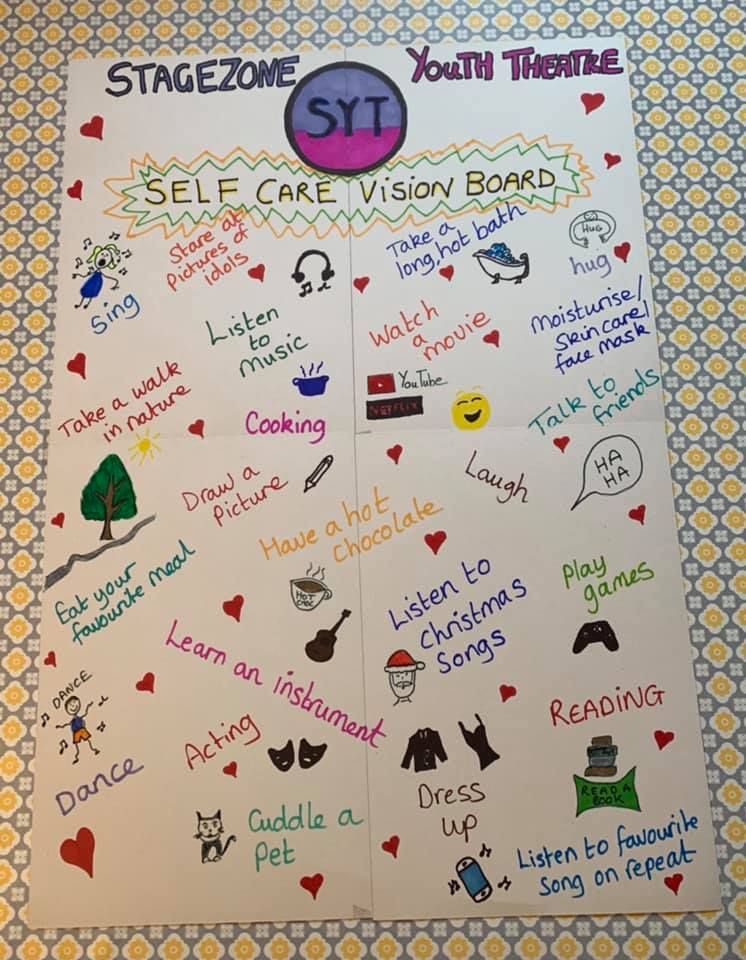 STAGEZONE
YOUTH THEATRE
SYT
SELF CARE VISION BOARD
Sing
Stare at
Pictures of
idols
Take a
long, hot bath
HUG
hug
Listen
to
music
Watch
a
movie
Moisturise/
Skin care/
face mask
Take a walk
in nature
Cooking
YouTube
NETFLIX
Talk to
friends
Draw a
Picture
Laugh
HA
HA
Have a hot
chocolate
HOT
CHOC
Eat your
favourite meal
Listen to
christmas
songs
Play
games
Learn an instrument
DANCE
Dance
Acting
READING
READ A
BOOK
Dress
up
Cuddle a
Pet
Listen to favourite
song on repeat